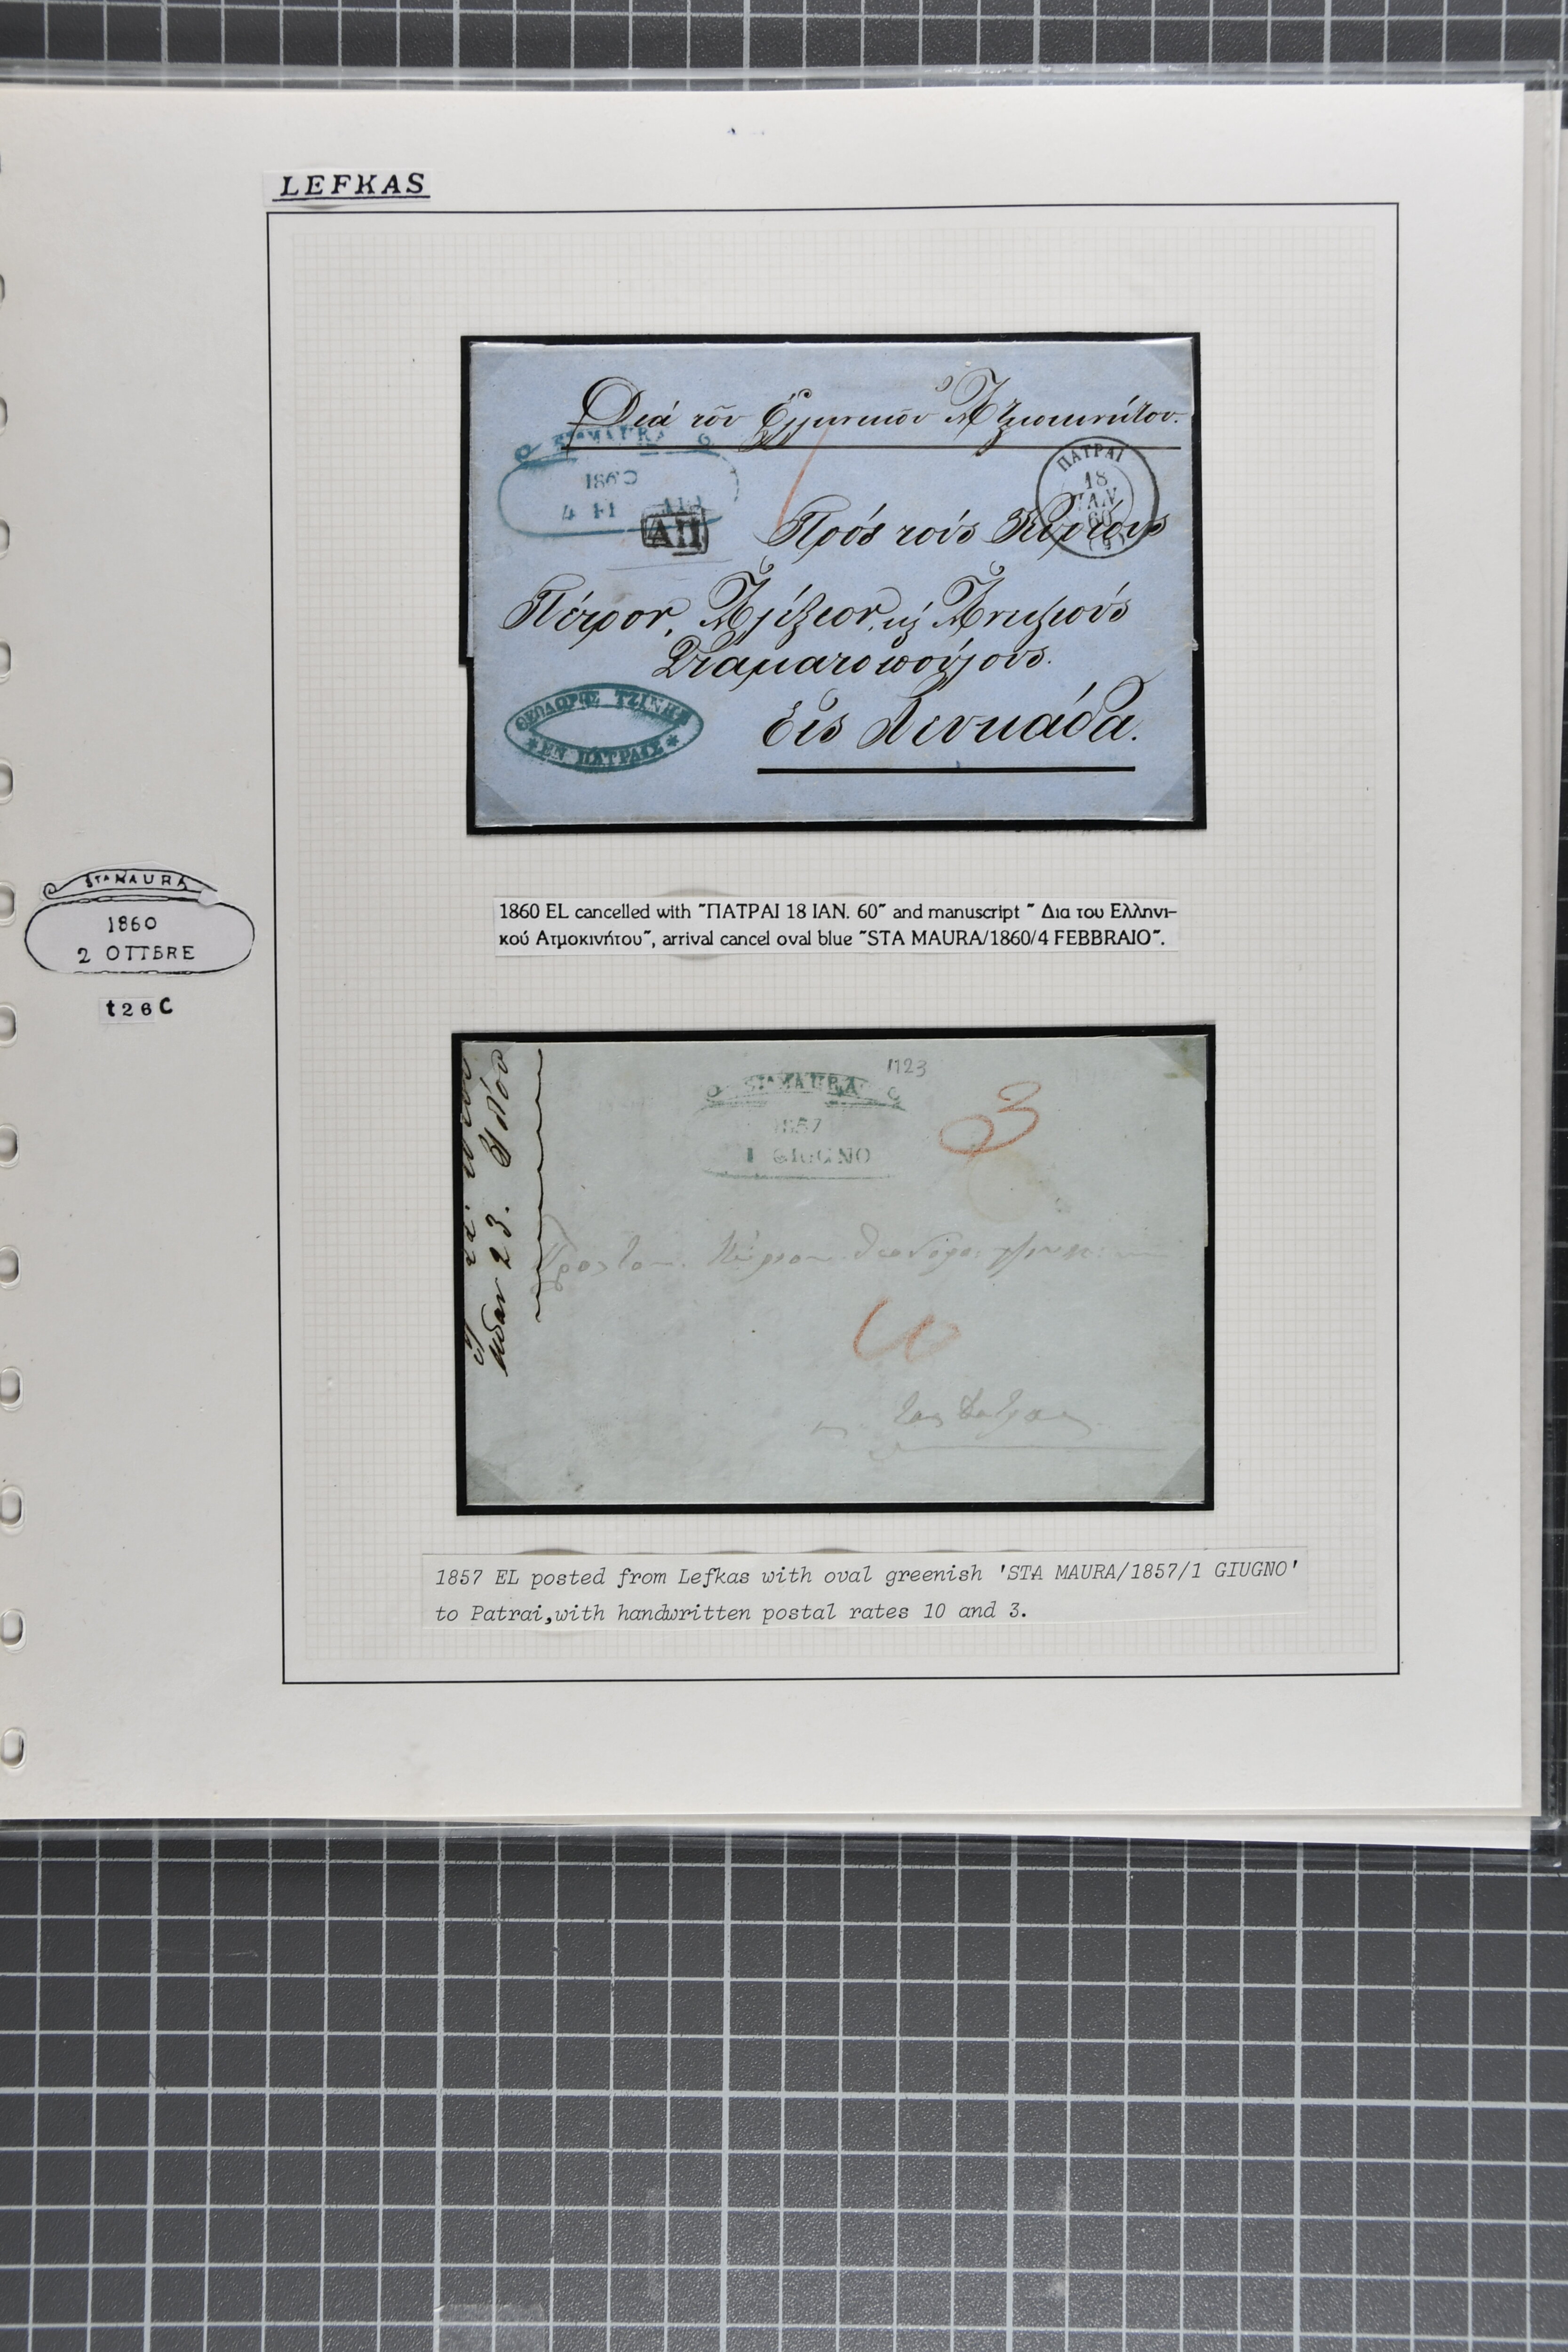 LEFKAS
Διά τοῦ Ἑλληνικοῦ Ἀτμοκινήτου.
STA MAURA
1860
ΠΑΤΡΑΙ
18
ΙΑΝ.
60
(9)
ΑΠ
Πρός τούς Κυρίους
Πέτρον, Ἀλέξιον, κ Ἀντωνίους
Σταματοπούλους.
Εἰς Λευκάδα.
ΘΕΟΔΩΡΗΣ ΤΖΙΝΗΣ
* ΕΝ ΠΑΤΡΑΙΣ *
STA MAURA
1860
2 OTTBRE
t26C
1860 EL cancelled with "ΠΑΤΡΑΙ 18 ΙΑΝ. 60" and manuscript " Δια του Ελληνι-
κού Ατμοκινήτου", arrival cancel oval blue "STA MAURA/1860/4 FEBBRAIO".
1123
STA MAURA
1857
1 GIUGNO
3
Προς Τον Κύριον
10
23.
1857 EL posted from Lefkas with oval greenish 'STA MAURA/1857/1 GIUGNO'
to Patrai,with handwritten postal rates 10 and 3.